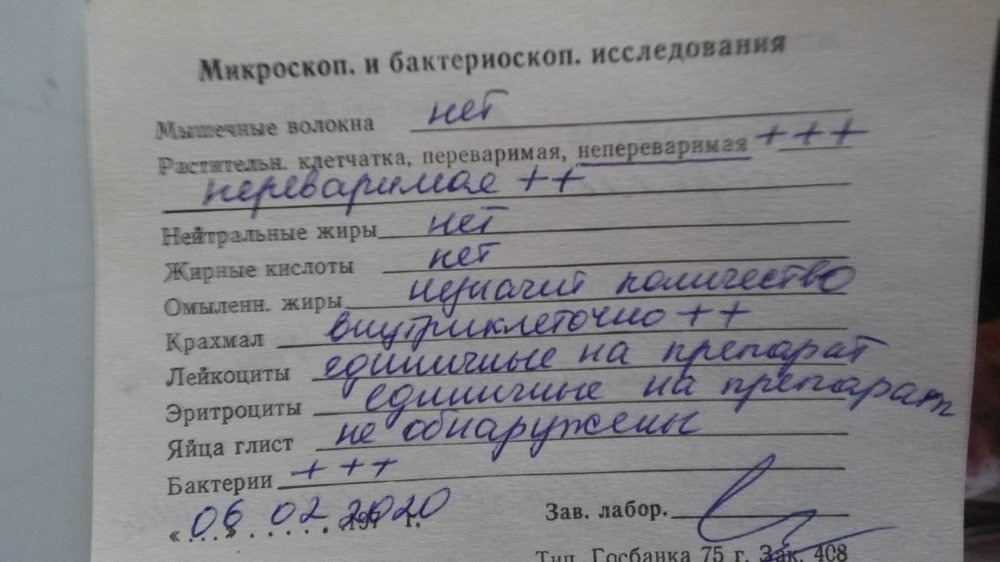 Микроскоп. и бактериоскоп. исследования
Мышечные волокна нет
Растительн. клетчатка, переваримая, непереваримая +++
переваримая ++
Нейтральные жиры нет
Жирные кислоты нет
Омыленн. жиры незначит количество
Крахмал внутриклеточно ++
Лейкоциты единичные на препарат
Эритроциты единичные на препарат
Яйца глист не обнаружены
Бактерии +++
«06» 02 2020 г. Зав. лабор.
Тип. Госбанка 75 г. Зак. 408